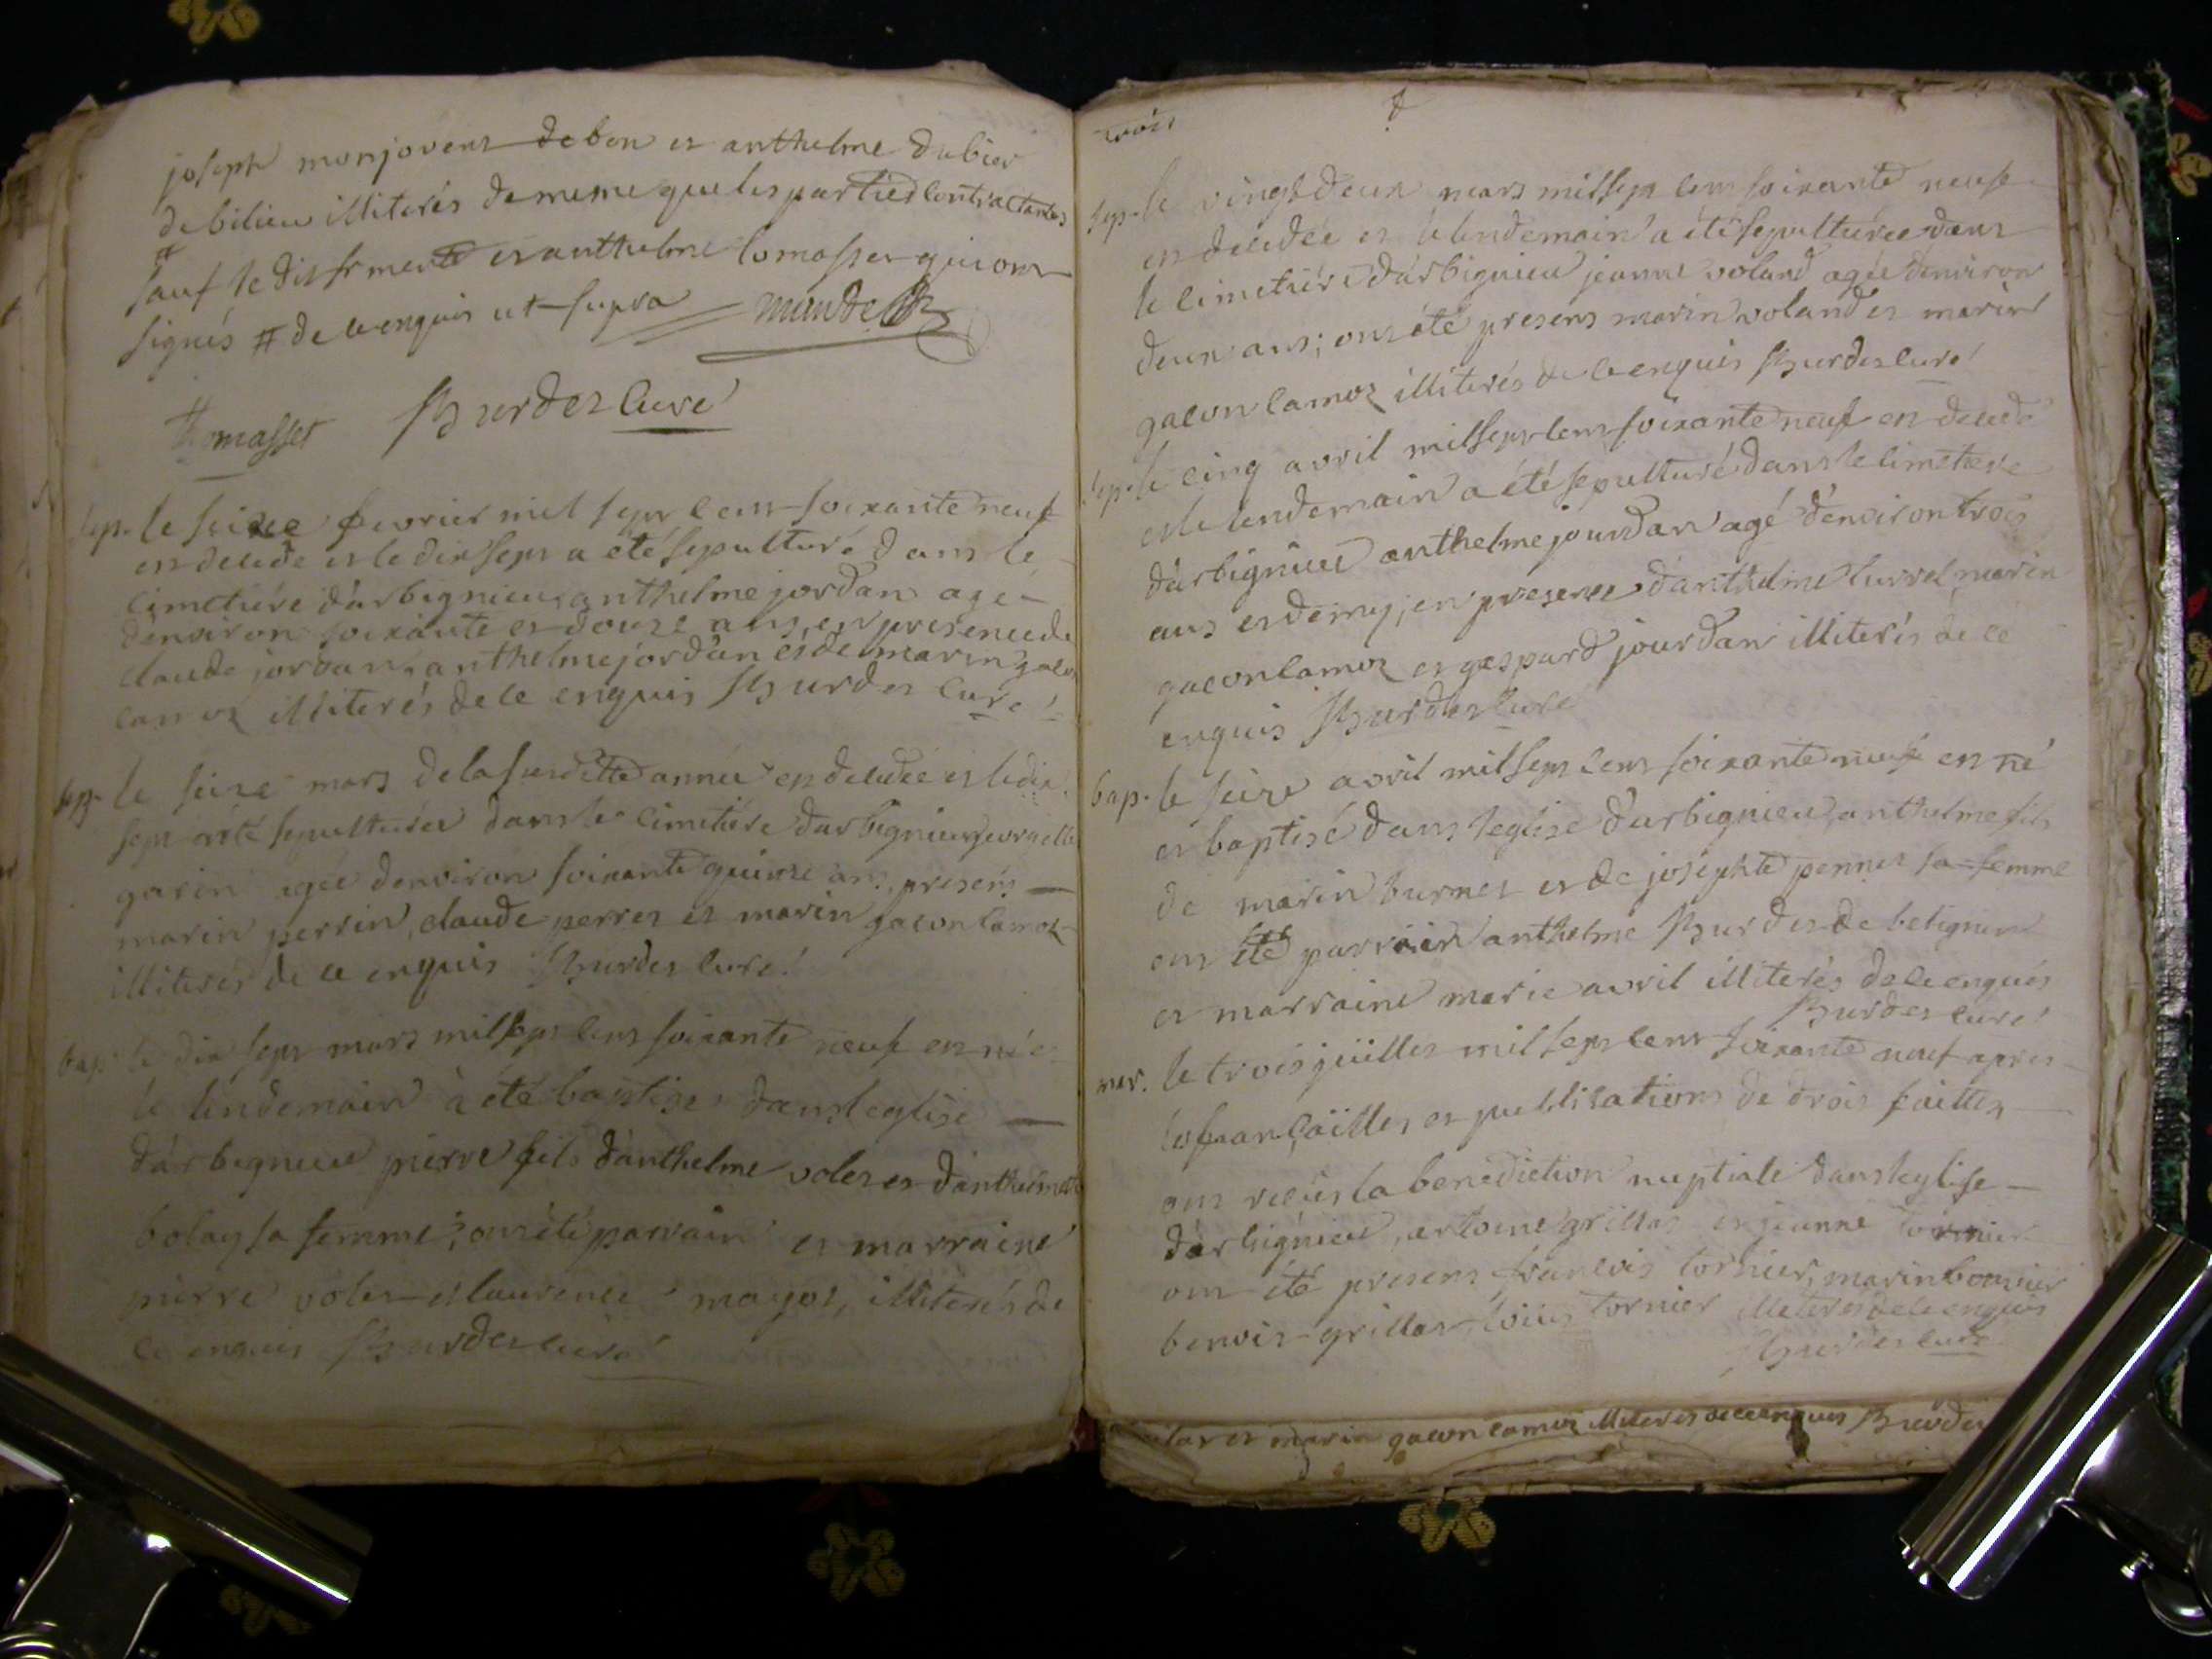 joseph monjovent debon et anthelme dubier
de bilieu illiterés de meme que les parties contractantes
sauf le dit sr et anthelme tomasset qui ont
signés # de ce enquis ut supra
thomasset Burdet curé
sep. le seize fevrier mil sept cent soixante neuf
est decede et le dix sept a eté sepulturé dans le
cimetiére d'arbignieu anthelme jordan agé
d'environ soixante et douze ans, en presence de
claude jordan, anthelme jordan et de marin gacon
camoz illiterés de ce enquis Burdet curé
sep. le seize mars de la susditte année est decedée et le dix
sept a eté sepulturée dans le cimetiére d'arbignieu
garin agée d'environ soixante quinze ans, presens
marin perrin, claude perret et marin gacon camoz
illiterés de ce enquis Burdet curé
bap. le dix sept mars mil sept cent soixante neuf est né et
le lendemain à eté baptisé dans l'eglise
d'arbignieu pierre fils d'anthelme volet et d'anthelmette
bolay sa femme, ont été parrain et marraine
pierre volet et laurence mayot, illiterés de
ce enquis Burdet curé
trois
sep. le vingt deux mars mil sept cent soixante neuf
est decedée et le lendemain a été sepulturée dans
le cimetiére d'arbignieu jeanne voland agée d'environ
deux ans; ont été presens marin voland et marin
gacon camoz illiterés de ce enquis Burdet curé
sep. le cinq avril mil sept cent soixante neuf est decedé
et le lendemain a été sepulturé dans le cimetiere
d'arbignieu anthelme jourdan agé d'environ trois
ans et demy, en presence d'anthelme marin
gacon camoz et gaspard jourdan illiterés de ce
enquis Burdet curé
bap. le seize avril mil sept cent soixante neuf est né
et baptisé dans l'eglise d'arbignieu, anthelme fils
de marin burnet et de josephte pennet sa femme
ont été parrain anthelme Burdet de betignieu
et marraine marie avril illiterés de ce enquis
Burdet curé
mar. le trois juillet mil sept cent soixante neuf apres
les fiançailles et publications de drois faittes
ont reçus la benediction nuptiale dans l'eglise
d'arbignieu, antoine grillat et jeanne tornier
ont été presens françois tornier, marin bonnier
benoit grillat, louis tornier illiterés de ce enquis
Burdet curé
et marin gacon camoz illiterés de ce enquis Burdet